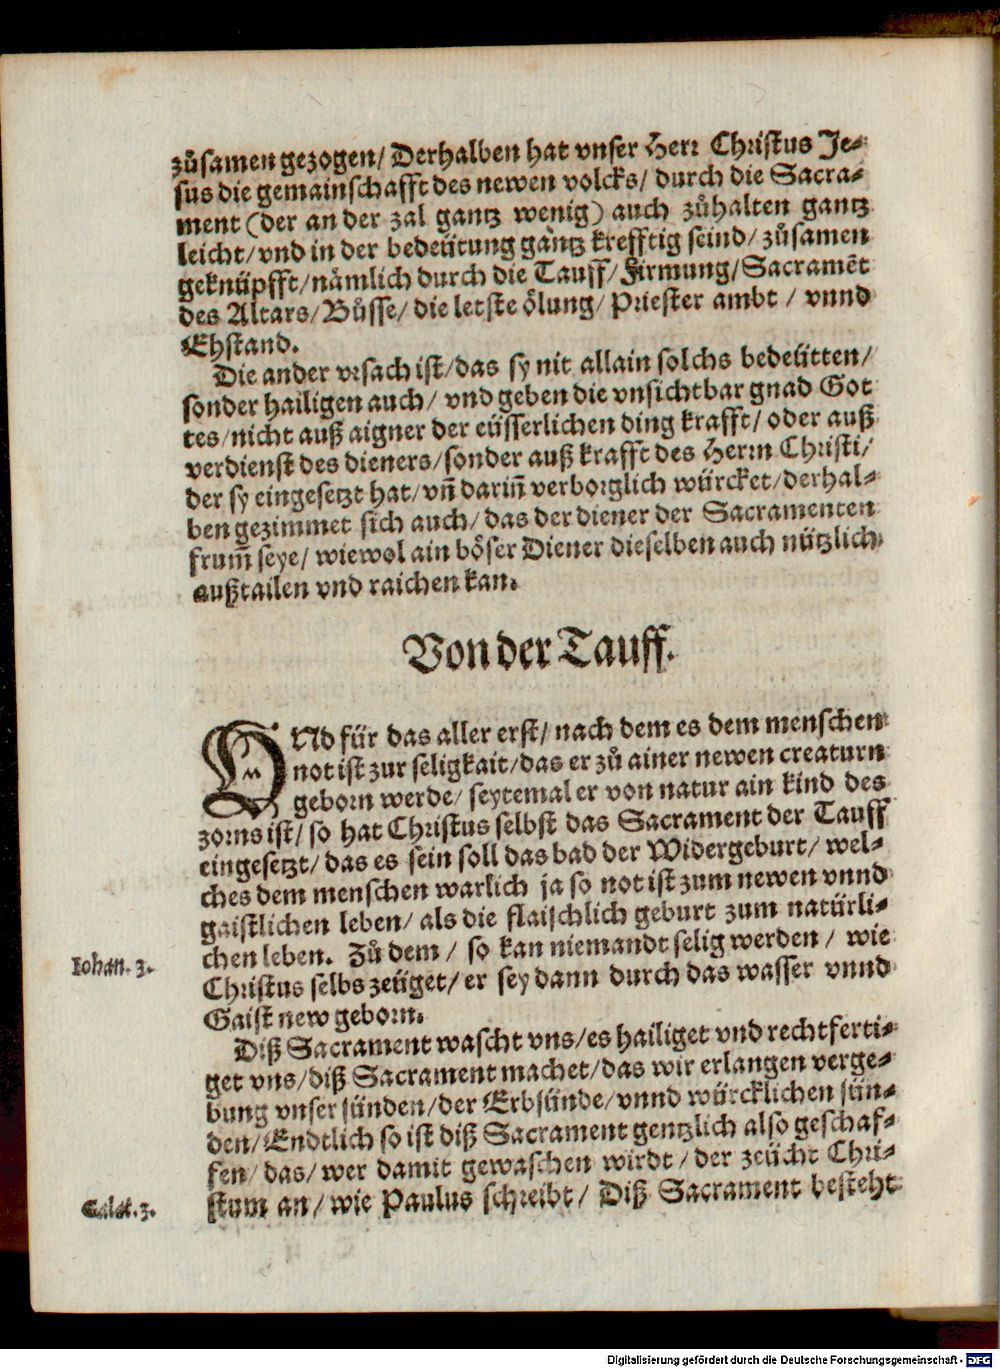 zůsamen gezogen/ Derhalben hat vnser Herr Christus Je-
sus die gemainschafft des newen volcks/ durch die Sacra-
ment (der an der zal gantz wenig) auch zůhalten gantz
leicht/ vnd in der bedeütung gàntz krefftig seind/ zůsamen
geknüpfft/ nämlich durch die Tauff/ Firmung/ Sacramẽt
des Altars/ Bůsse/ die letste ölung/ Priester ambt / vnnd
Ehstand.
Die ander vrsach ist/ das sy nit allain solchs bedeütten/
sonder hailigen auch/ vnd geben die vnsichtbar gnad Got
tes/ nicht auß aigner der eüsserlichen ding krafft/ oder auß
verdienst des dieners/ sonder auß krafft des Herrn Christi/
der sy eingesetzt hat/ vñ dariñ verborglich würcket/ derhal-
ben gezimmet sich auch/ das der diener der Sacramenten
frum̃ seye/ wiewol ain böser Diener dieselben auch nützlich
außtailen vnd raichen kan.
Von der Tauff.
VNd für das aller erst/ nach dem es dem menschen
not ist zur seligkait/ das er zů ainer newen creaturn
geborn werde/ seytemal er von natur ain kind des
zorns ist/ so hat Christus selbst das Sacrament der Tauff
eingesetzt/ das es sein soll das bad der Widergeburt/ wel-
ches dem menschen warlich ja so not ist zum newen vnnd
gaistlichen leben/ als die flaischlich geburt zum natürli-
chen leben. Zů dem / so kan niemandt selig werden / wie
Iohan. 3.
Christus selbs zeüget/ er sey dann durch das wasser vnnd
Gaist new geborn.
Diß Sacrament wascht vns/ es hailiget vnd rechtferti-
get vns/ diß Sacrament machet/ das wir erlangen verge-
bung vnser sünden/ der Erbsünde/ vnnd würcklichen sün-
den/ Endtlich so ist diß Sacrament gentzlich also geschaf-
fen/ das/ wer damit gewaschen wirdt / der zeücht Chri-
stum an / wie Paulus schreibt/ Diß Sacrament besteht
Galat. 3.
Digitalisierung gefördert durch die Deutsche Forschungsgemeinschaft - DFG